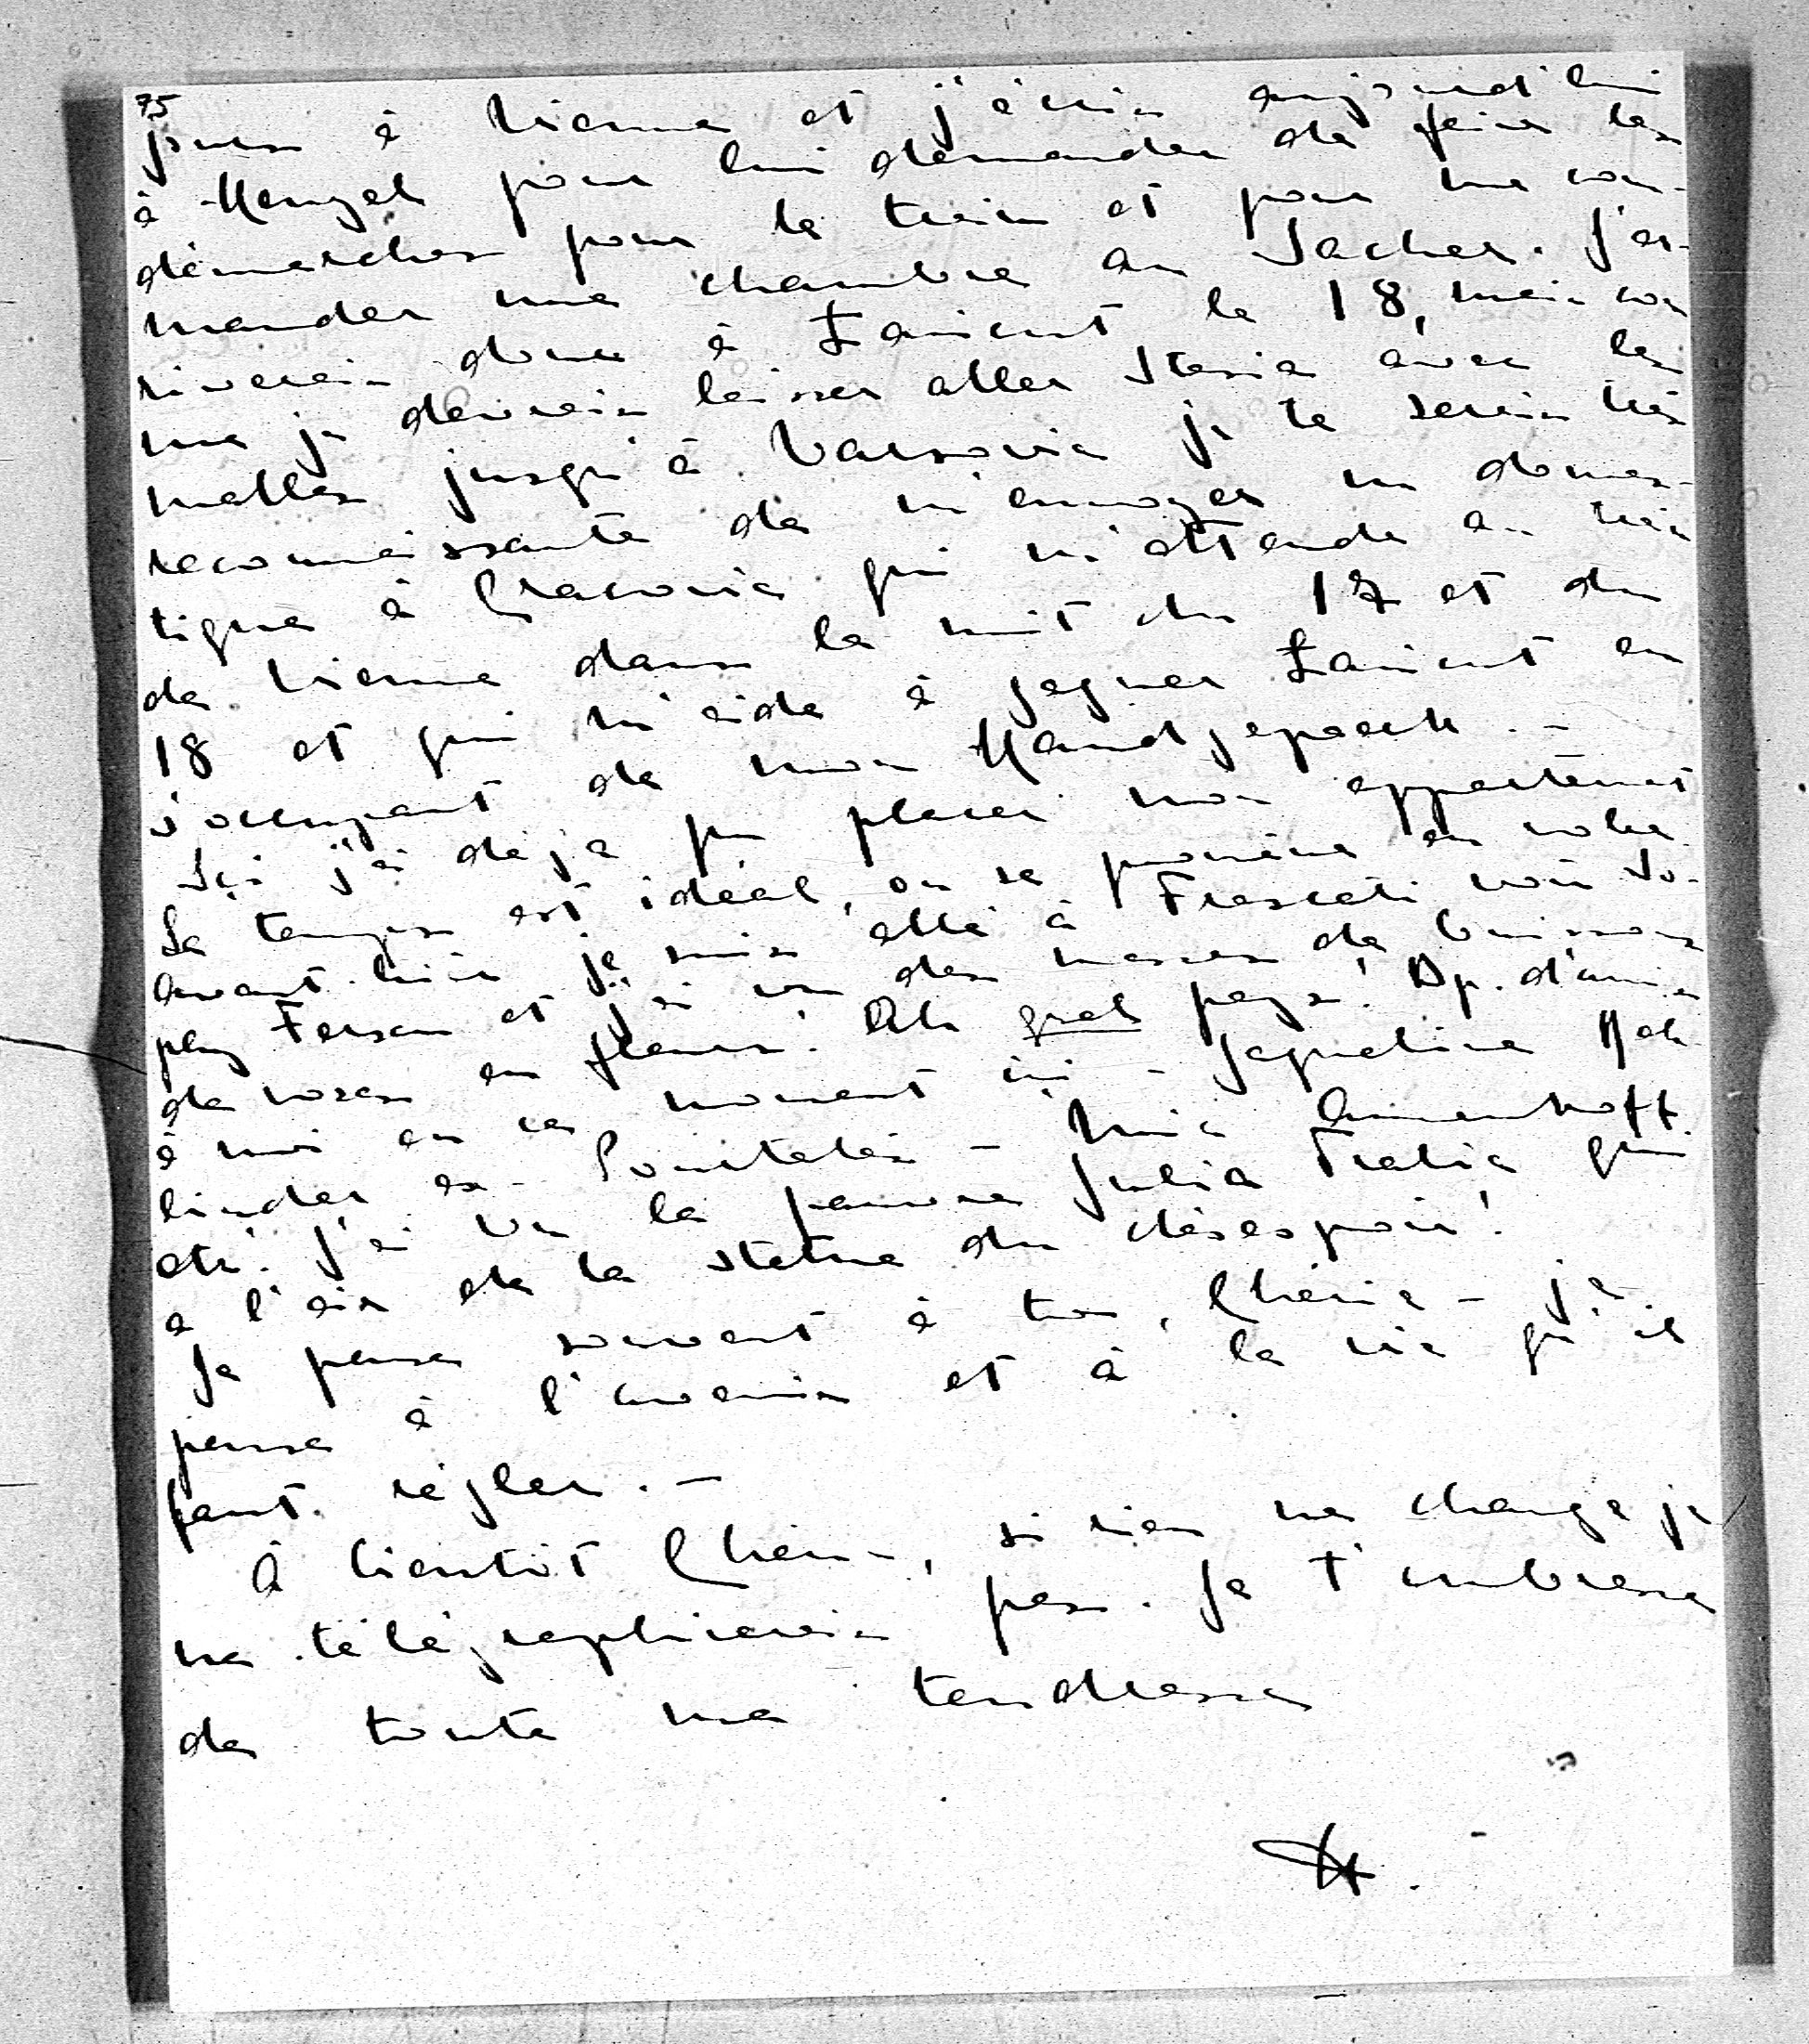 75
jours à Vienne et j'écris aujourd'hui
à Menzel pour lui demander de faire les
démarches pour le train et pour me com-
mander une chambre au Sacher. J'ar-
riverai donc à Łańcut le 18, mais com
me je devrai laisser aller Stasia avec les
malles jusqu'à Varsovie je te serais très
reconnaissante de m'envoyer un domes-
tique à Cracovie qui m'attende au train
de Vienne dans la nuit du 17 et du
18 et qui m'aide à gagner Łańcut en
s'occupant de mon Handgepäck. –
Ici j'ai déjà pu placer mon appartement
Le temps est idéal, on se promène en robe.
Avant-hier je suis allé à Frascati voir
Fersen et j'ai vu des masses de buissons
de roses en fleurs! Ah quel pays! Bp. d'amis
à moi en ce moment ici – Jaqueline
ex – Pourtalès –
etc. J'ai vu la pauvre Julia qui
a l'air de la statue du désespoir!
Je pense souvent à toi, Chérie – je
pense à l'avenir et à la vie qu'il
faut régler. –
À bientôt Chérie, si rien ne change je
ne télégraphierai pas. Je t'embrasse
de toute ma tendresse